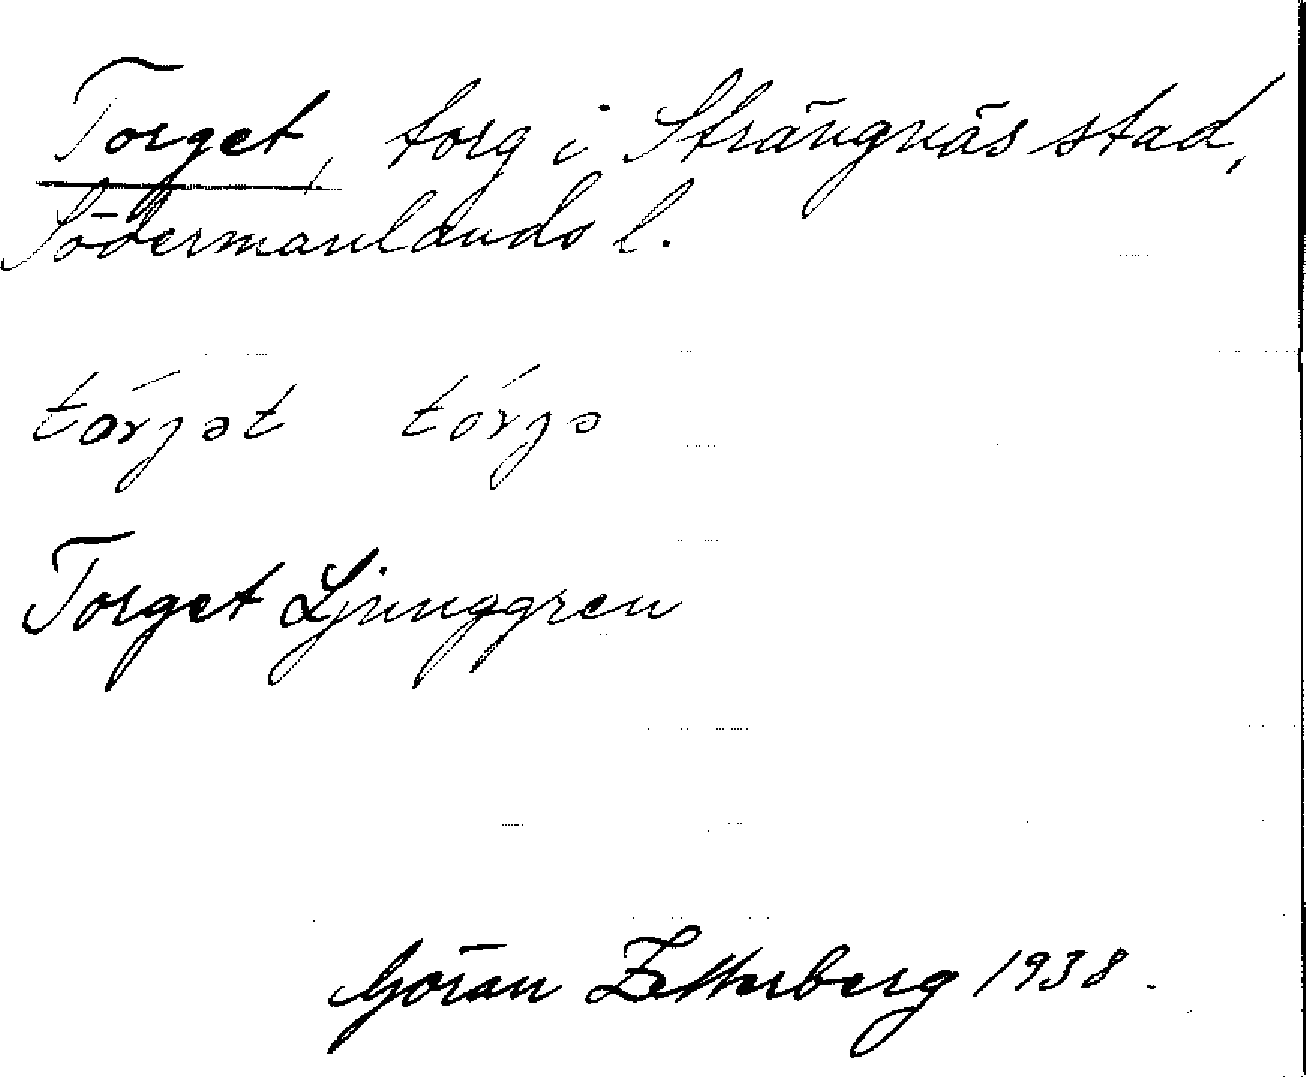 Torget, torg i Strängnäs stad,
Södermanlands l.
tórjət tórjə
Torget Ljunggren
Göran Zetterberg 1938.